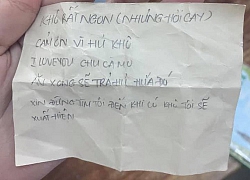 KHÔ RẤT NGON (NHƯNG HƠI CAY)
CẢM ƠN VÌ HỦ KHÔ
I LOVE YOU CHU CA MO
ĂN XONG SẼ TRẢ HỦ HỨA ĐÓ
XIN ĐỪNG TÌM TÔI ĐẾN KHI CÓ KHÔ TÔI SẼ
XUẤT HIỆN